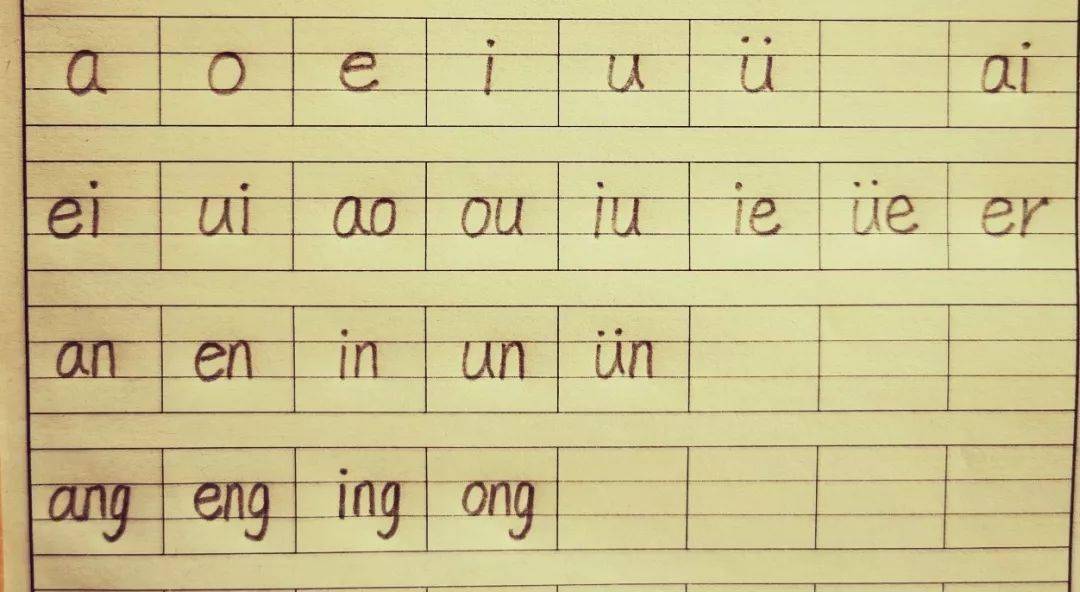 a o e i u ü ai
ei ui ao ou iu ie üe er
an en in un ün
ang eng ing ong